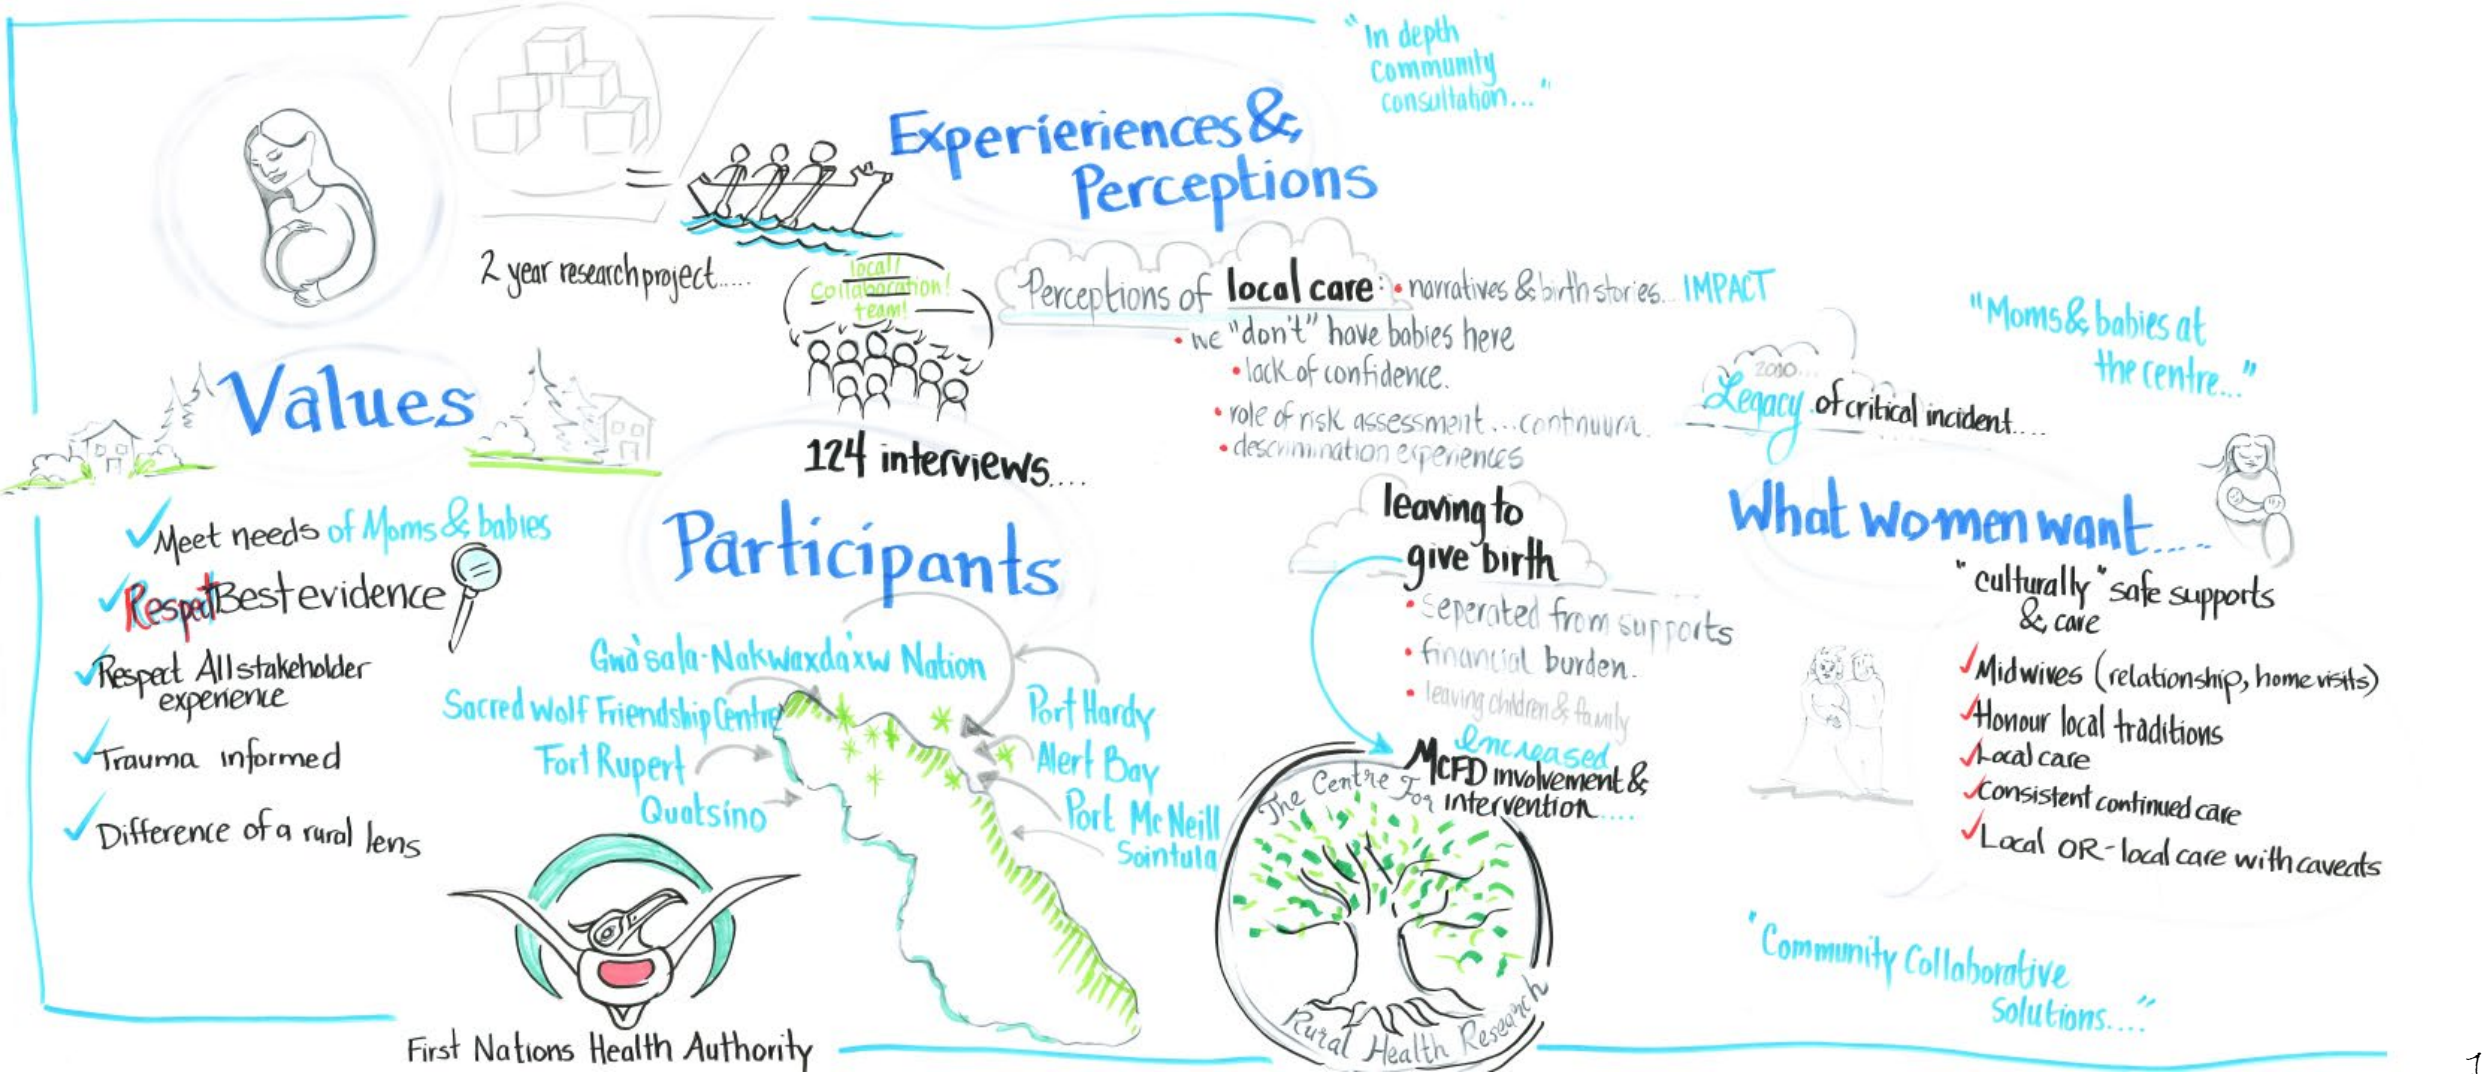 "In depth
Community
consultation..."
Experieriences &
Perceptions
=
2 year research project.....
local/
Collaboration!
team!
124 interviews....
Values
✓Meet needs of Moms & babies
✓Respect Best evidence
✓Respect All stakeholder
experience
✓Trauma informed
✓Difference of a rural lens
Participants
Gwa'sala-Nakwaxda'xw Nation
Sacred Wolf Friendship Centre
Fort Rupert
Quatsino
Port Hardy
Alert Bay
Port McNeill
Sointula
First Nations Health Authority
Perceptions of local care: • narratives & birth stories... IMPACT
• we "don't" have babies here
• lack of confidence.
• role of risk assessment...continuum.
• descrimination experiences
leaving to
give birth
• Seperated from supports
• financial burden..
• leaving children & family
increased
MCFD involvement &
intervention.....
The Centre For
Rural Health Research
2010...
Legacy of critical incident....
"Moms & babies at
the centre..."
What women want.....
"culturally" safe supports
& care
✓Midwives (relationship, home visits)
✓Honour local traditions
✓Local care
✓Consistent continued care
✓Local OR-local care with caveats
"Community Collaborative
Solutions...."
1